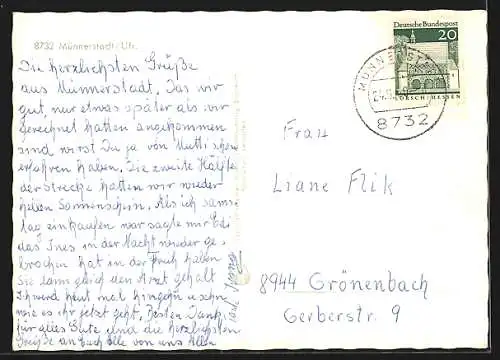 8732 Münnerstadt/Ufr.
Die herzlichsten Grüße
aus Münnerstadt. Das wir
gut, nur etwas später als wir
gerechnet hatten angekommen
sind wirst Du ja von Mutti schon
erfahren haben. Die zweite Hälfte
der Strecke hatten wir wieder
hellen Sonnenschein. Als ich sams-
tag einkaufen war sagte mir
das Ines in der Nacht wieder ge-
brochen hat in der Früh haben
Sie dann gleich den Arzt geholt
Ich werd heut mal hingehn u. sehn
wie es ihr jetzt geht. Besten Dank
für alles Gute und die herzlichsten
Grüße an Euch Alle von uns Allen
Deutsche Bundespost
20
LORSCH/HESSEN
MÜNNERSTADT
8732
Frau
Liane Flik
8944 Grönenbach
Gerberstr. 9